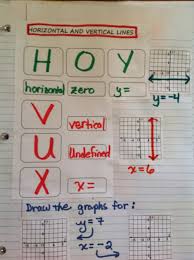 HORIZONTAL AND VERTICAL LINES
H O Y
horizontal zero y=
y=-4
V
vertical
U
Undefined
X
x=
x=6
Draw the graphs for:
y=7
x=-2